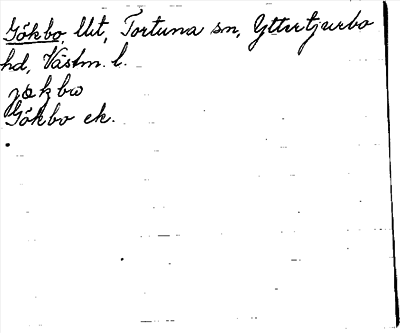 Gökbo, Ut, Tortuna sn, Yttertjurbo
hd, Västm. l.
Gökbo ek.